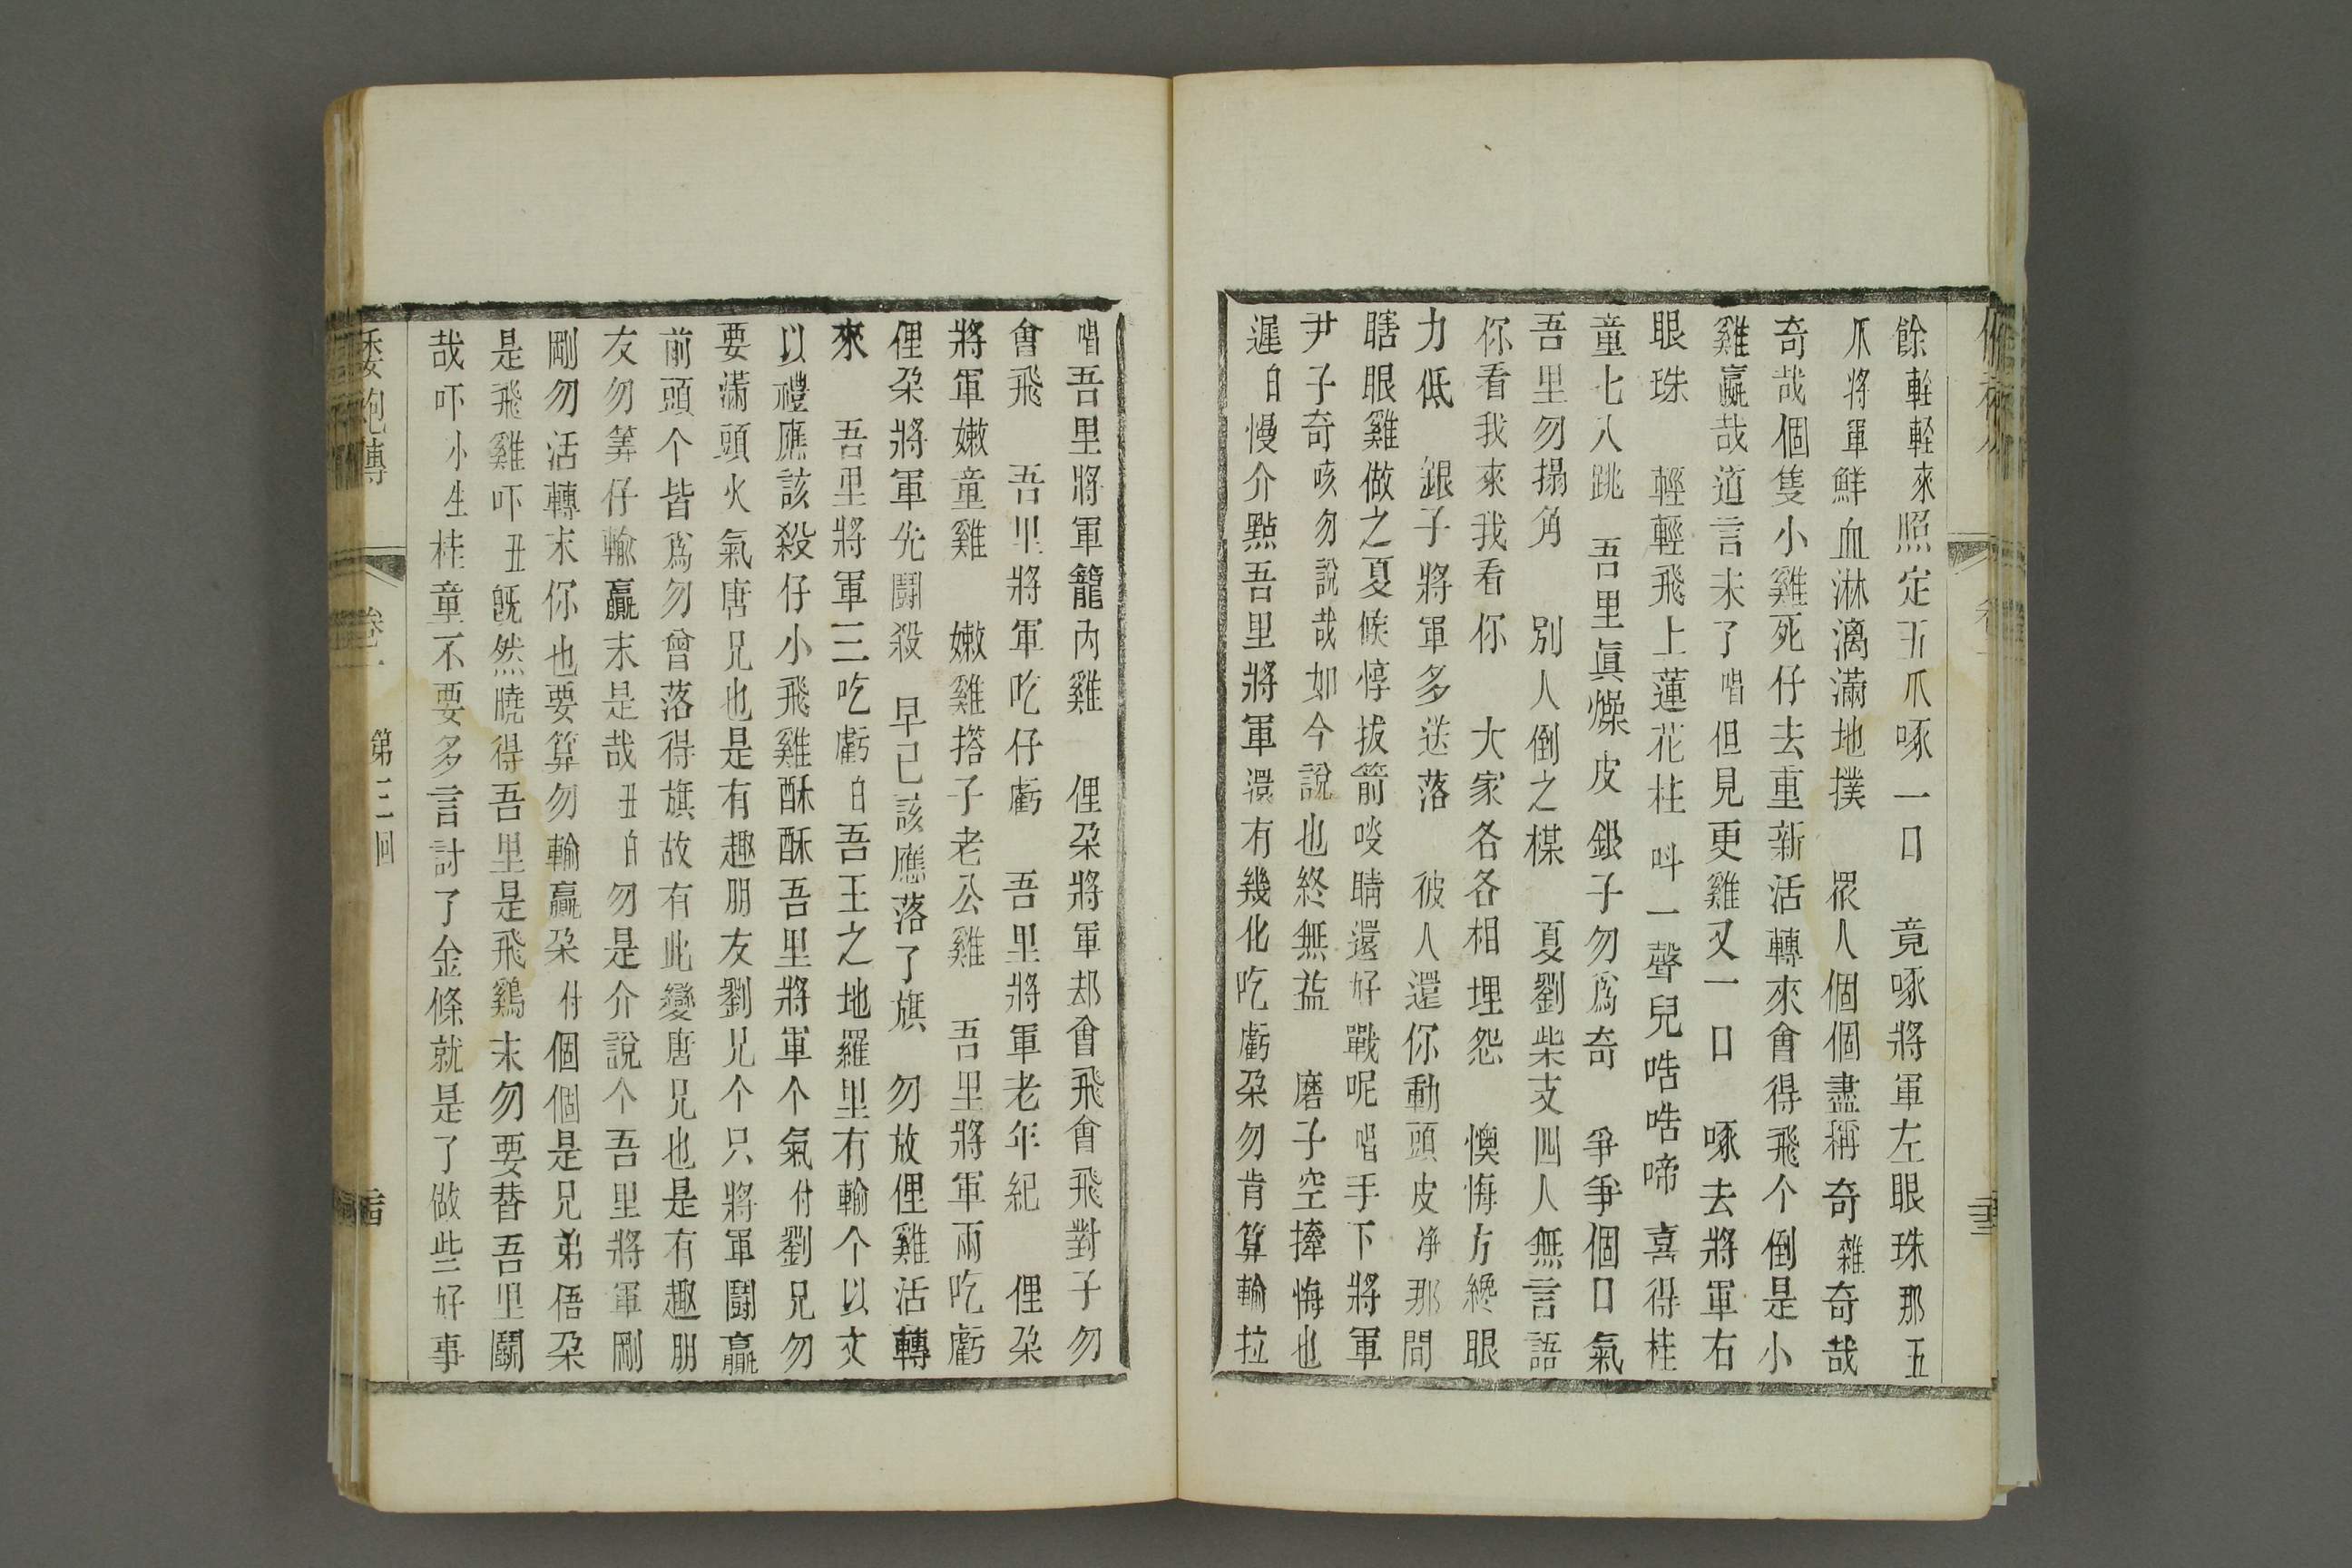 餘輕輕來照定五爪啄一口 竟啄將軍左眼珠那五
爪將軍鮮血淋漓滿地撲 眾人個個盡稱奇雜奇哉
奇哉個隻小雞死仔去重新活轉來會得飛个倒是小
雞贏哉道言未了唱但見更雞又一口 啄去將軍右
眼珠 輕輕飛上蓮花柱 呌一聲兒咾咾啼 喜得桂
童七八跳 吾里眞燥皮 銀子勿爲奇 爭爭個口氣
吾里勿搨角 別人倒之楳 夏劉柴支四人無言語
你看我來我看你 大家各各相埋怨 懊悔方纔眼
力低 銀子將軍多送落 彼人還你動頭皮净那間
瞎眼雞做之夏候惇拔箭啖睛還好戰呢唱手下將軍
尹子奇咳勿說哉如今說也終無益 磨子空捧悔也
遲白慢介點吾里將軍還有幾化吃虧朶勿肯算輸拉
唱吾里將軍籠內雞 俚朶將軍却會飛會飛對子勿
會飛 吾里將軍吃仔虧 吾里將軍老年紀 俚朶
將軍嫩童雞 嫩雞搭子老公雞 吾里將軍兩吃虧
俚朶將軍先鬬殺 早已該應落了旗 勿放俚雞活轉
來 吾里將軍三吃虧白吾王之地羅里有輸个以文
以禮應該殺仔小飛雞酥酥吾里將軍个氣付劉兄勿
要滿頭火氣唐兄也是有趣朋友劉兄个只將軍鬬贏
前頭个皆爲勿曾落得旗故有此變唐兄也是有趣朋
友勿筭仔輸贏末是哉丑白勿是介說个吾里將軍剛
剛勿活轉末你也要算勿輸贏朶付個個是兄弟俉朶
是飛雞吓丑旣然曉得吾里是飛鷄末勿要替吾里鬬
哉吓小生桂童不要多言討了金條就是了做些好事
倭袍傳 卷一 第三回